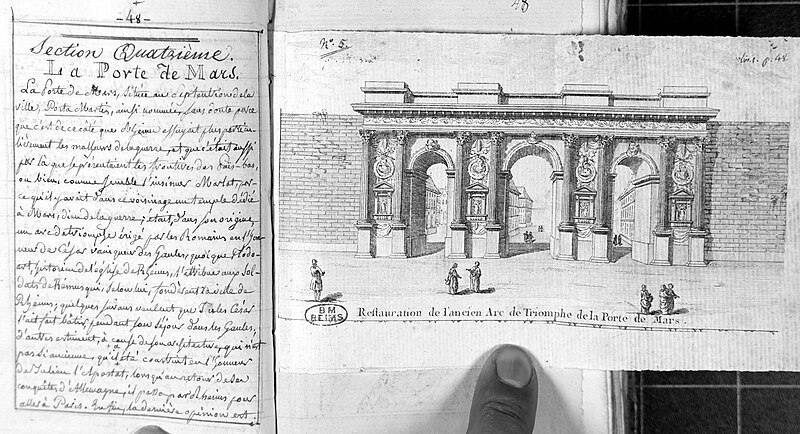 -48-
Section Quatrième.
La Porte de Mars.
La Porte de Mars, située au septentrion de la
ville, Porta Martis, ainsi nommée, sans doute parce
que c'est de ce côté que Rheims essuyait plus particu-
lièrement les malheurs de la guerre, et que c'était aussi
par là que se présentaient les troupes des Pais-bas,
ou bien, comme semble l'insinuer Marlot, par-
ce qu'il y avait dans ce voisinage un temple dédié
à Mars, dieu de la guerre; était dans son origine
un arc de triomphe érigé par les Romains en l'hon-
neur de César vainqueur des Gaules, quoique Flodo-
ard, historien de l'église de Rheims, l'attribue aux sol-
dats de Rémus qui, selon lui, fondèrent la ville de
Rheims; quelques savans veulent que Jules César
l'ait fait bâtir pendant son séjour dans les Gaules,
d'autres estiment, à cause de son architecture, qui n'est
pas si ancienne, qu'il a été construit en l'honneur
de Julien l'Apostat, lorsqu'au retour de ses
conquêtes d'Allemagne, il passa par Rheims pour
aller à Paris. Enfin, la dernière opinion est
48
N.º 5.
p. 48.
BM
REIMS
Restauration de l'ancien Arc de Triomphe de la Porte de Mars.